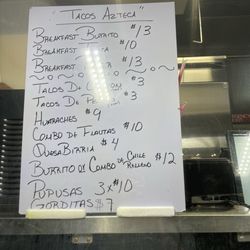 "TACOS AZTECA"
BREAKFAST BURRITO $13
BREAKFAST $10
BREAKFAST $13
TACOS DE $3
TACOS DE $3
HUARACHES $9
COMBO DE FLAUTAS $10
QUESABIRRIA $4
BURRITO OR COMBO DE CHILE RELLENO $12
PUPUSAS 3x$10
GORDITAS $7